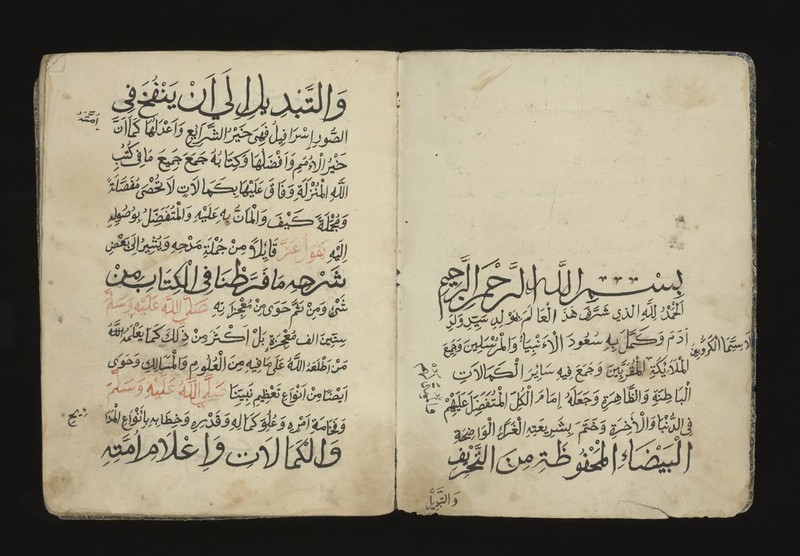 بسم الله الرحمن الرحيم
الحمد لله الذي شرف هذا العالم بمولد سيد ولد
ادم وكمل به سعود الانبياء والمرسلين وجميع
لا سيما الكروبيين
الملائكة المقربين وجمع فيه ساير الكمالات
الباطنة والظاهرة وجعله امام الكل المتفضل عليهم
في الدنيا والاخرة وختم بشريعته الغراء الواضحة
البيضاء المحفوظة من التحريف
والتبديل
والتبديل الى ان ينفخ في
الصور اسرافيل فهي خير الشرايع واعدلها كما ان
امته
خير الامم وافضلها وكتابه جمع جميع ما في كتب
الله المنزلة وفاق عليها بكمالات لا تحصى مفصلة
ومجملة كيف والمان به عليه والمتفضل بوصوله
اليه يقول عز قايلا من جملة مدحه ويشير الى بعض
شرحه ما فرطنا في الكتاب من
شئ ومن ثم حوى من معجزاته صلى الله عليه وسلم
ستين الف معجزة بل اكثر من ذلك كما يعلمه
من اطلعه الله على ما فيه من العلوم والمسالك وحوى
ايضا من انواع تعظيم نبينا صلى الله عليه وسلم
وفخامة امره وعلو كماله وقدره وخطابه بانواع
والكمالات واعلام امته